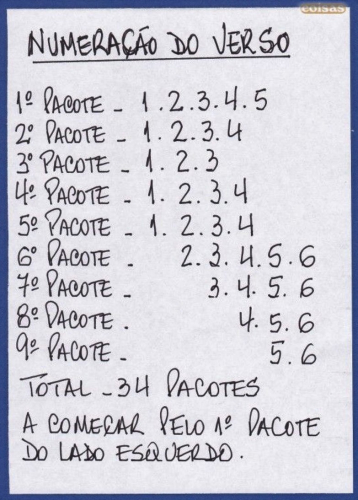 coisas
NUMERAÇÃO DO VERSO
1º PACOTE - 1.2.3.4.5
2º PACOTE - 1.2.3.4
3º PACOTE - 1.2.3
4º PACOTE - 1.2.3.4
5º PACOTE - 1.2.3.4
6º PACOTE - 2.3.4.5.6
7º PACOTE - 3.4.5.6
8º PACOTE. 4.5.6
9º PACOTE - 5.6
TOTAL - 34 PACOTES
A COMEÇAR PELO 1º PACOTE
DO LADO ESQUERDO.